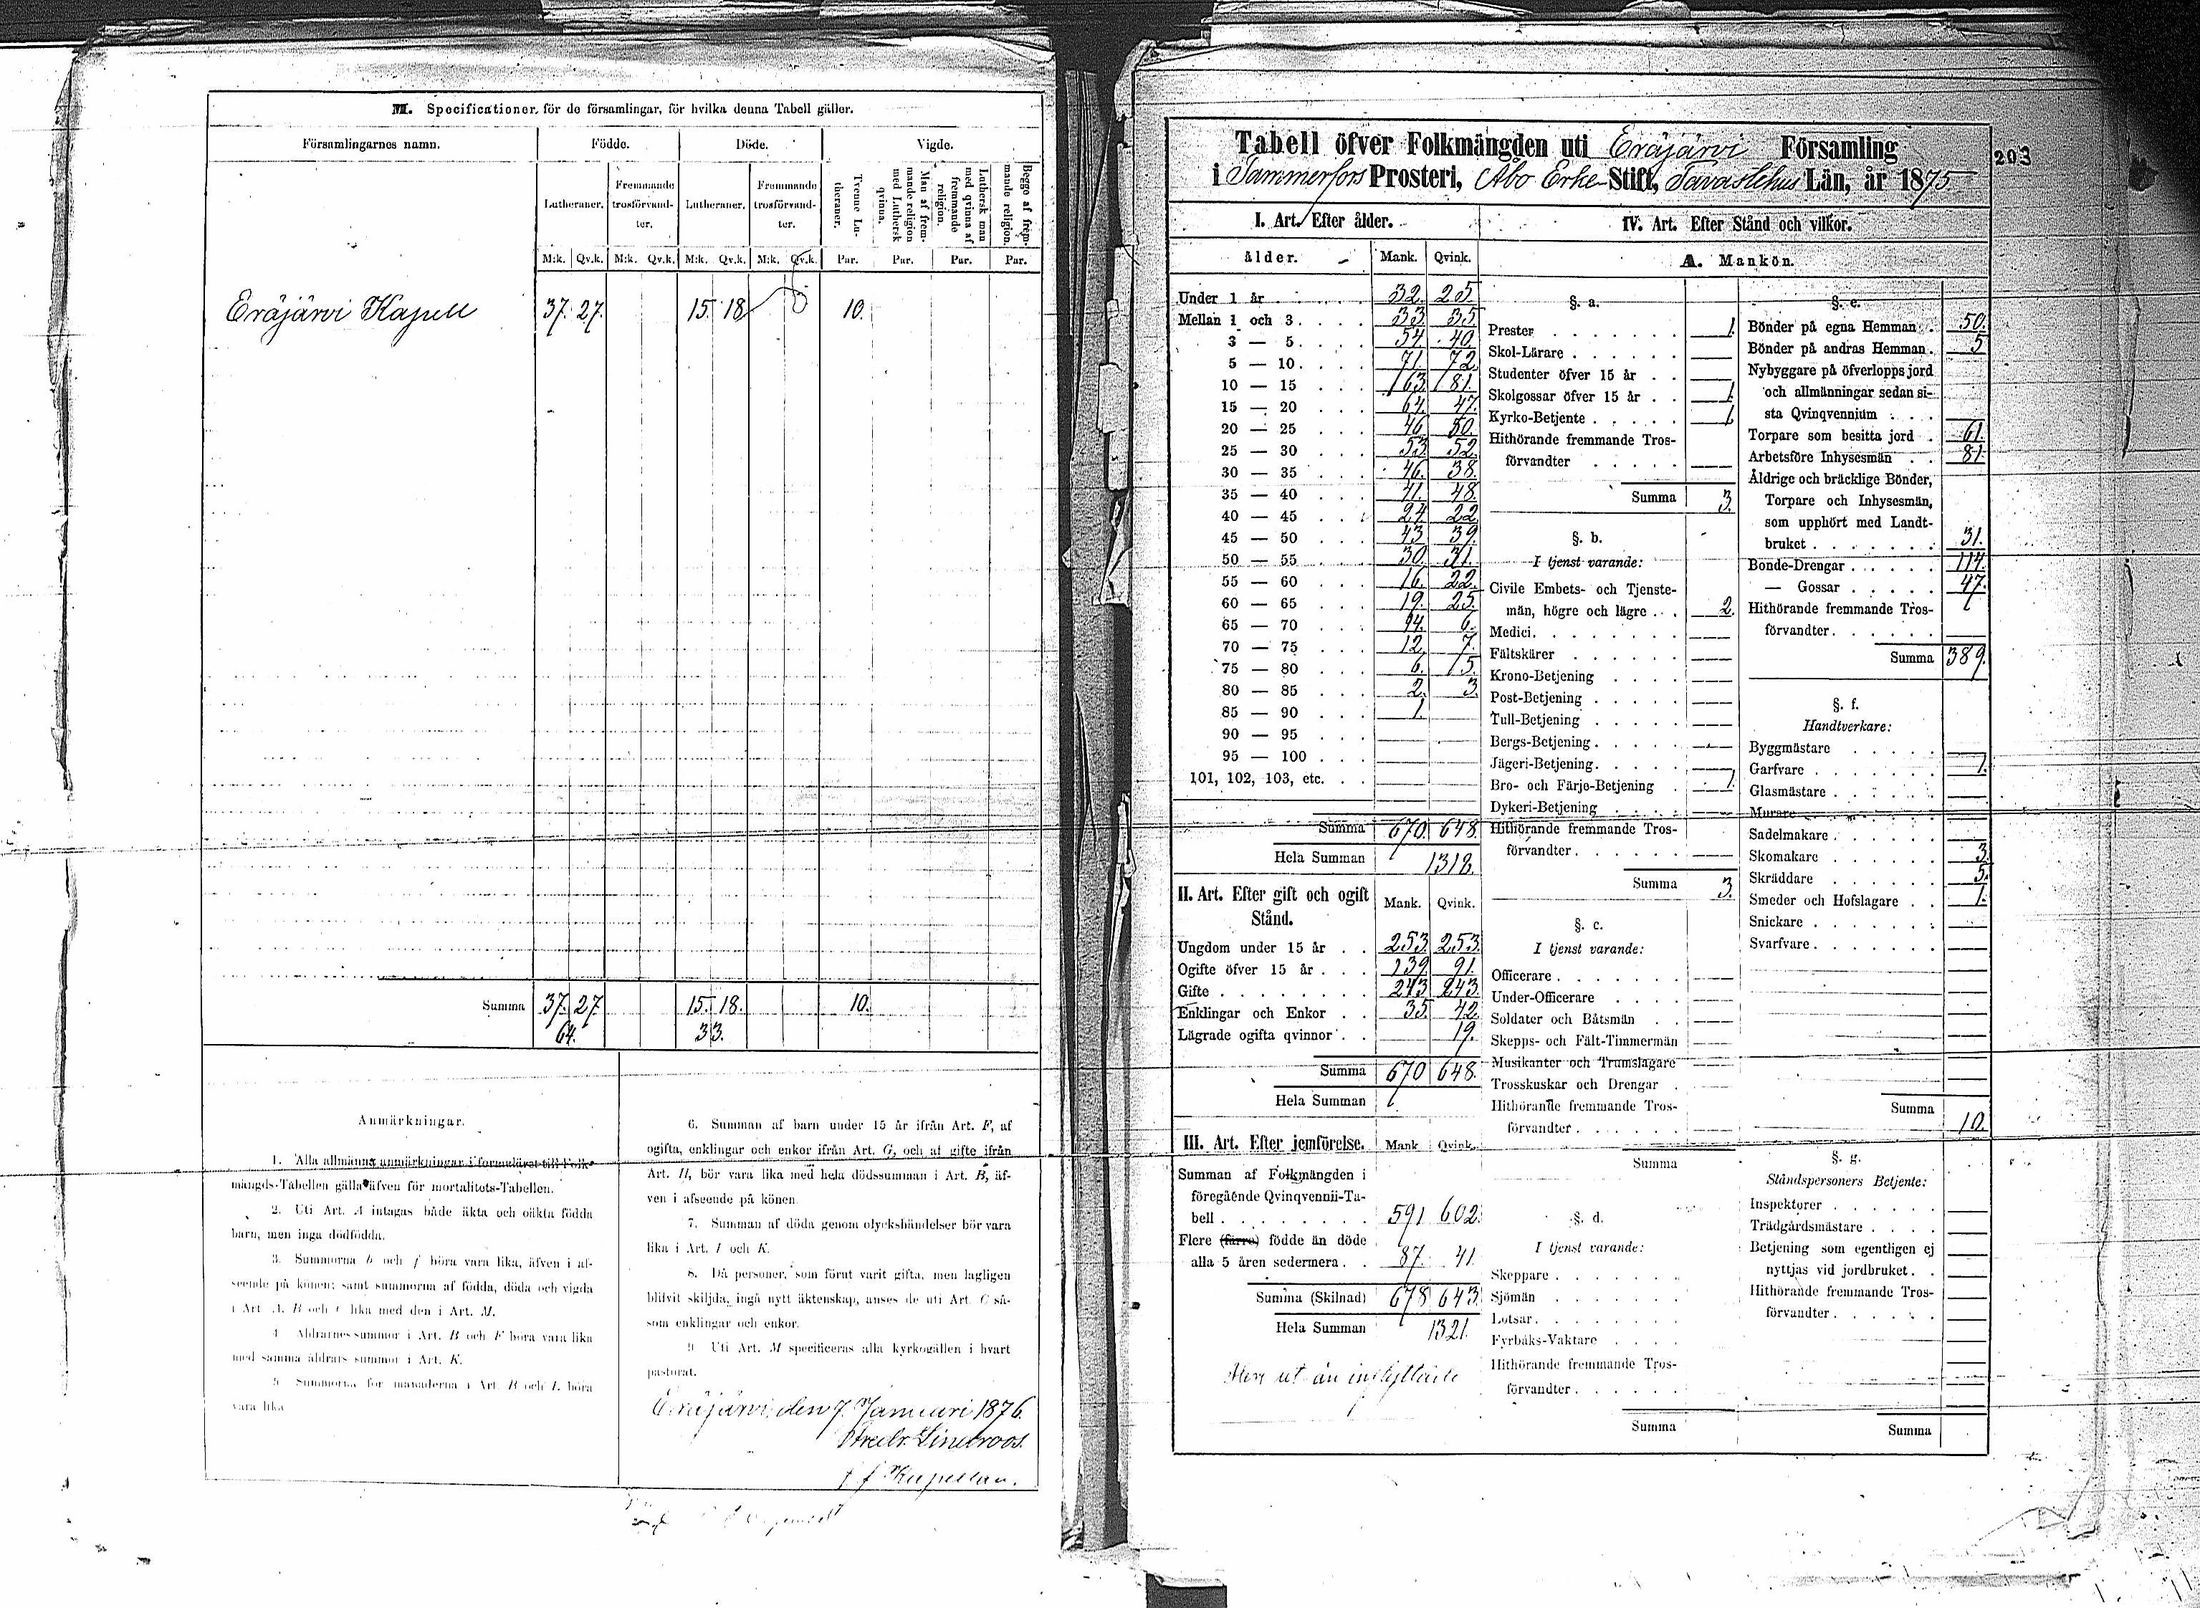 M. Specificationer, för de församlingar, för hvilka denna Tabell gäller.
Församlingarnes namn. Födde. Döde. Vigde.
Lutheraner. Fremmande trosförvandter. Lutheraner. Fremmande trosförvandter. Tvenne Lutheraner. Man af fremmande religion med Luthersk qvinna. Luthersk man med qvinna af fremmande religion. Begge af fremmande religion.
M:k. Qv.k. M:k. Qv.k. M:k. Qv.k. M:k. Qv.k. Par. Par. Par. Par.
Eräjärvi Kapell 37. 27. 15. 18 10.
Summa 37. 27. 15. 18. 10.
64. 33.
Anmärkningar.
1. Alla allmänna anmärkningar i formuläret till Folk-
mängds-Tabellen gälla äfven för mortalitets-Tabellen.
2. Uti Art. A intagas både äkta och oäkta födda
barn, men inga dödfödda.
3. Summorna b och f böra vara lika, äfven i af-
seende på könen; samt summorna af födda, döda och vigda
i Art. A. B och C lika med den i Art. M.
4. Åldrarnes summor i Art. B och F böra vara lika
med samma åldrars summor i Art. K.
5. Summorna för månaderna i Art. B och L böra
vara lika
6. Summan af barn under 15 år ifrån Art. F, af
ogifta, enklingar och enkor ifrån Art. G, och af gifte ifrån
Art. H, bör vara lika med hela dödssumman i Art. B, äf-
ven i afseende på könen.
7. Summan af döda genom olyckshändelser bör vara
lika i Art. I och K.
8. Då personer, som förut varit gifta, men lagligen
blifvit skiljda, ingå nytt äktenskap, anses de uti Art. C så-
som enklingar och enkor.
9. Uti Art. M specificeras alla kyrkogällen i hvart
pastorat.
Eräjärvi, den 7. Januari 1876.
Lindroos.
f f Kapellan.
203
Tabell öfver Folkmängden uti Eräjärvi Församling
i Tammerfors Prosteri, Åbo Erke-Stift, Tavastehus Län, år 1875
I. Art. Efter ålder.
ålder. Mank. Qvink.
Under 1 år 32. 25.
Mellan 1 och 3 33 35.
3 — 5 54 40.
5 — 10 71. 72.
10 — 15 63. 81.
15 — 20 64. 47.
20 — 25 46 50.
25 — 30 53 52.
30 — 35 46. 38.
35 — 40 41. 48.
40 — 45 24. 22
45 — 50 43 39.
50 — 55 30. 31.
55 — 60 16. 22.
60 — 65 19. 25.
65 — 70 14. 6.
70 — 75 12. 7.
75 — 80 6. 5.
80 — 85 2. 3.
85 — 90 1.
90 — 95
95 — 100
101, 102, 103, etc.
Summa 670. 648.
Hela Summan 1318.
II. Art. Efter gift och ogift Stånd. Mank. Qvink.
Ungdom under 15 år 253. 253.
Ogifte öfver 15 år 139. 91.
Gifte 243 243.
Enklingar och Enkor 35. 42.
Lägrade ogifta qvinnor 19.
Summa 670 648.
Hela Summan
III. Art. Efter jemförelse. Mank Qvink.
Summan af Folkmängden i
föregående Qvinqvennii-Ta-
bell 591 602.
Flere (färre) födde än döde
alla 5 åren sedermera 87. 41.
Summa (Skilnad) 678 643.
Hela Summan 1321.
Flere ut än inflyttade
IV. Art. Efter Stånd och vilkor.
A. Mankön.
§. a.
Prester 1.
Skol-Lärare
Studenter öfver 15 år
Skolgossar öfver 15 år 1.
Kyrko-Betjente 1.
Hithörande fremmande Tros-
förvandter
Summa 3.
§. b.
I tjenst varande:
Civile Embets- och Tjenste-
män, högre och lägre 2.
Medici.
Fältskärer
Krono-Betjening
Post-Betjening
Tull-Betjening
Bergs-Betjening
Jägeri-Betjening
Bro- och Färje-Betjening 1.
Dykeri-Betjening
Hithörande fremmande Tros-
förvandter
Summa 3.
§. c.
I tjenst varande:
Officerare
Under-Officerare
Soldater och Båtsmän
Skepps- och Fält-Timmermän
Musikanter och Trumslagare
Trosskuskar och Drengar
Hithörande fremmande Tros-
förvandter
Summa
§. d.
I tjenst varande:
Skeppare
Sjömän
Lotsar
Fyrbåks-Vaktare
Hithörande fremmande Tros-
förvandter
Summa
§. e.
Bönder på egna Hemman 50.
Bönder på andras Hemman 5
Nybyggare på öfverlopps jord
och allmänningar sedan si-
sta Qvinqvennium
Torpare som besitta jord 61.
Arbetsföre Inhysesmän 81.
Åldrige och bräcklige Bönder,
Torpare och Inhysesmän,
som upphört med Landt-
bruket 31.
Bonde-Drengar 114.
— Gossar 47.
Hithörande fremmande Tros-
förvandter
Summa 389.
§. f.
Handtverkare:
Byggmästare
Garfvare 1.
Glasmästare
Murare
Sadelmakare
Skomakare 3.
Skräddare 5.
Smeder och Hofslagare 1.
Snickare
Svarfvare
Summa 10.
§. g.
Ståndspersoners Betjente:
Inspektorer
Trädgårdsmästare
Betjening som egentligen ej
nyttjas vid jordbruket
Hithörande fremmande Tros-
förvandter
Summa